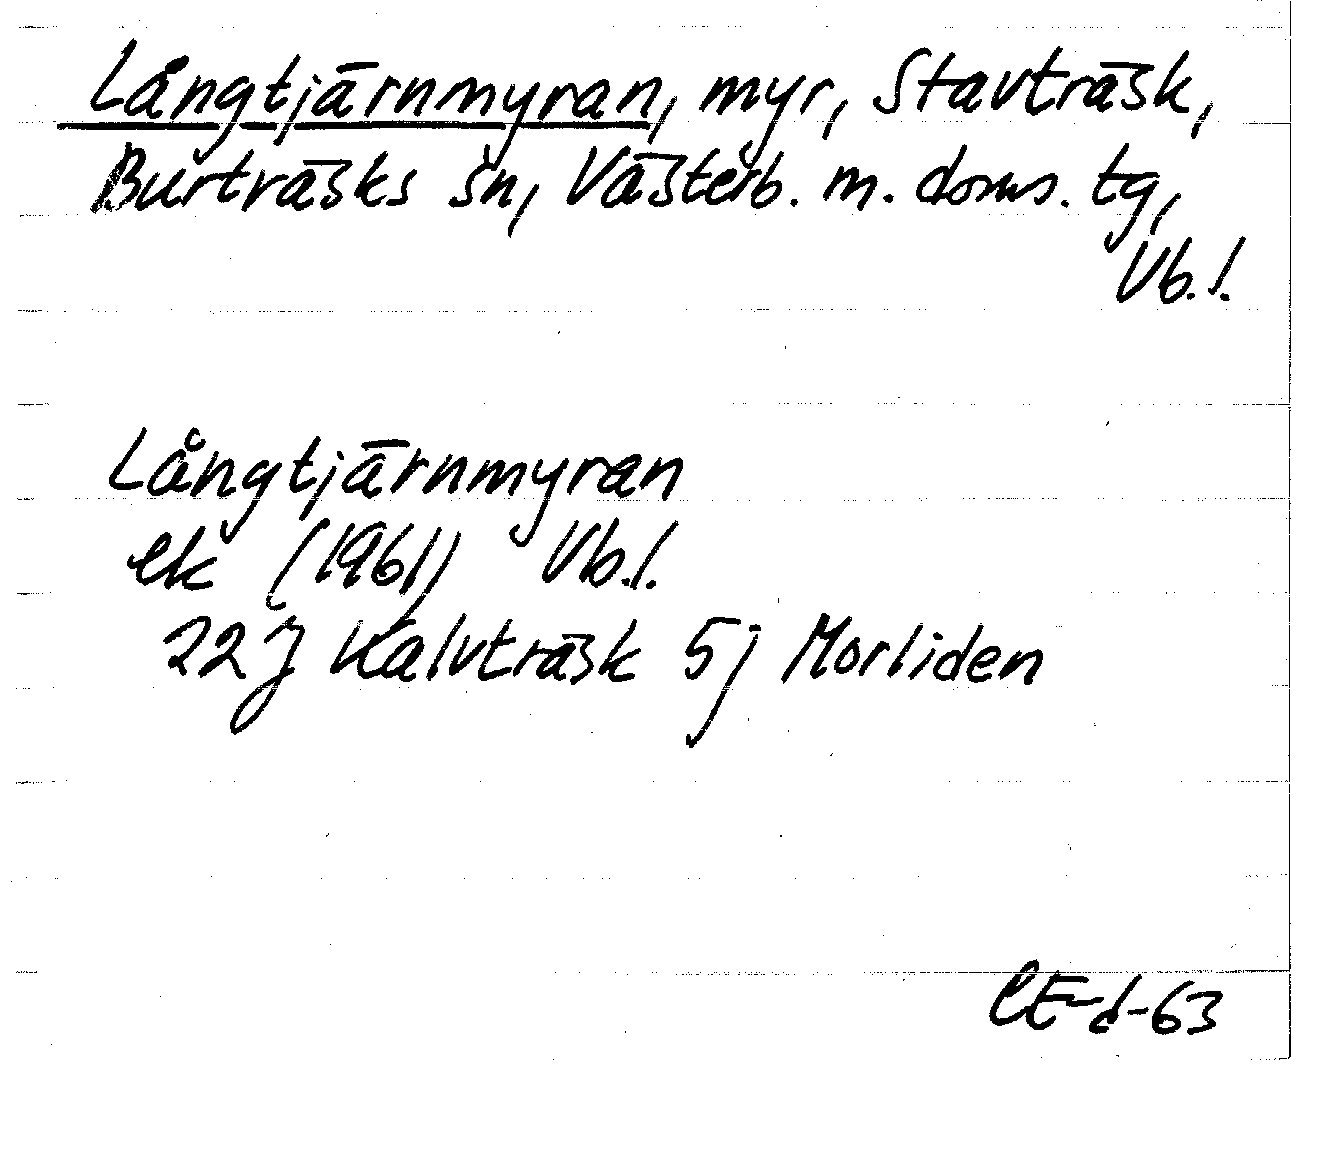 Långtjärnmyran, myr, Stavträsk,
Burträsks sn, Västerb. m. doms. tg,
Vb.l.
Långtjärnmyran
ek (1961) Vb.l.
22 J Kalvträsk 5j Morliden
CE-d-63